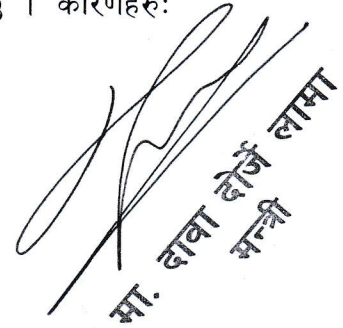 । कारणहरुः
मा. दावा दोर्जे लामा
मन्त्री